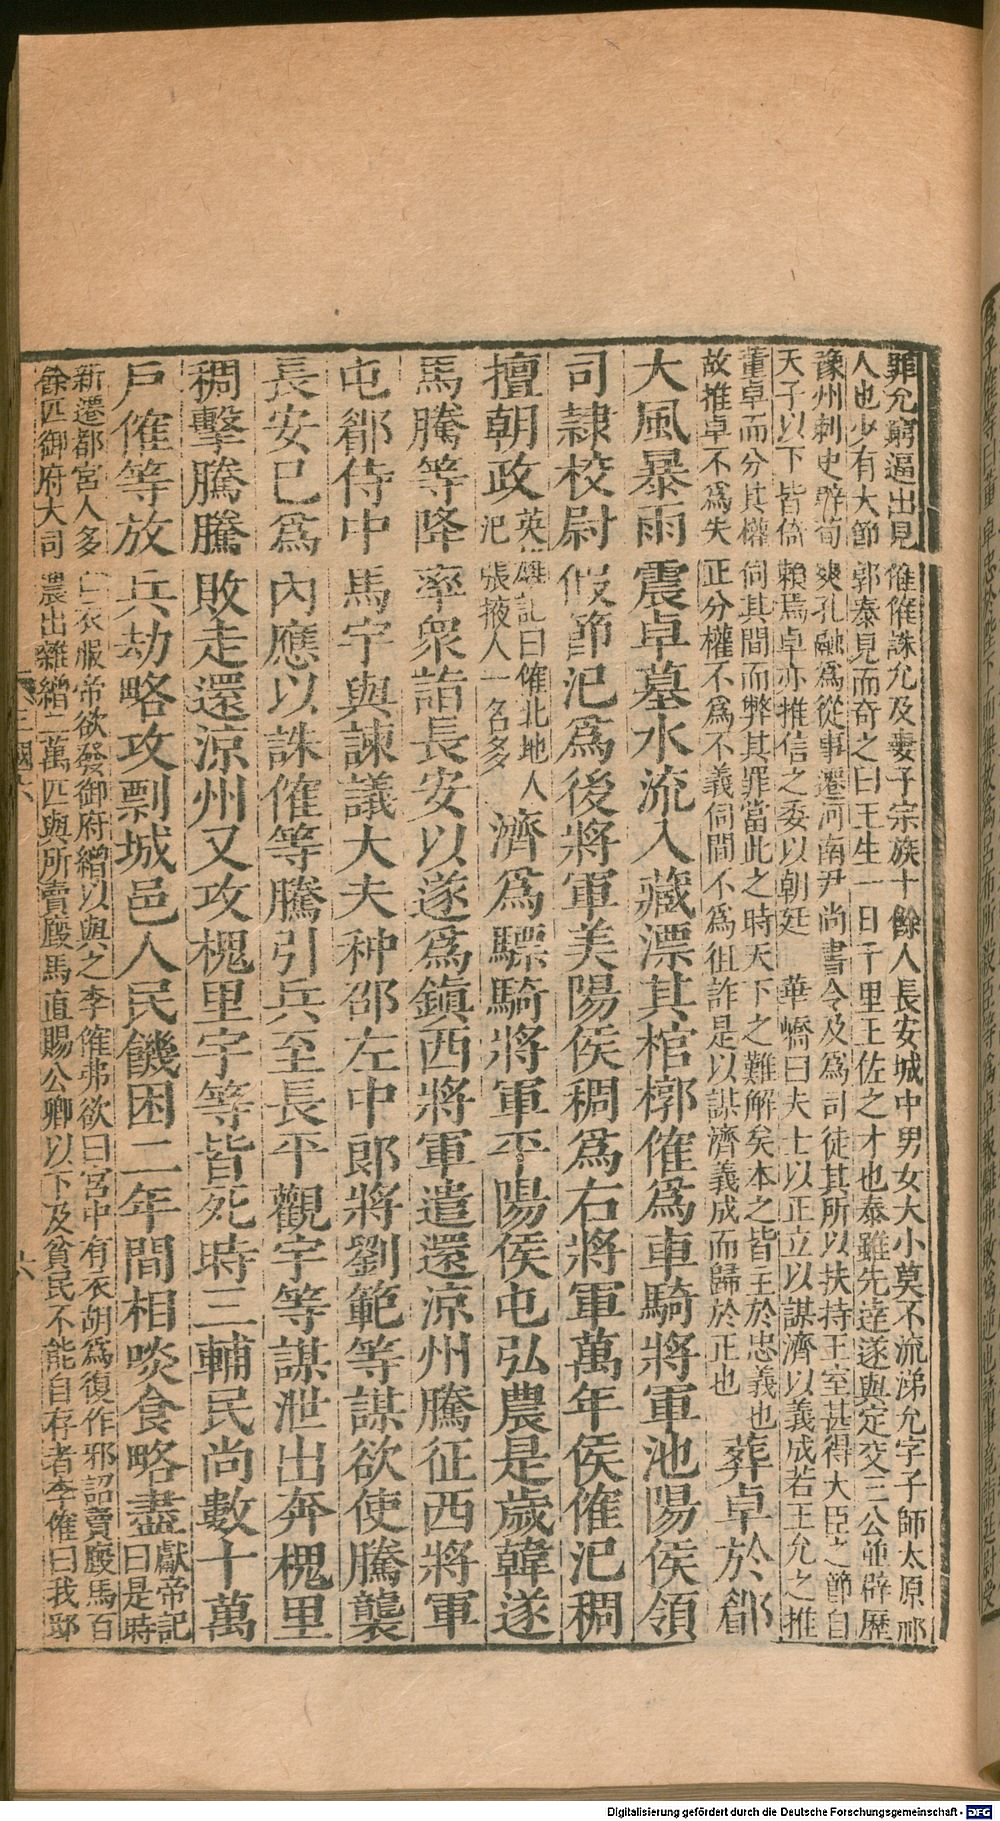 罪允窮逼出見傕傕誅允及妻子宗族十餘人長安城中男女大小莫不流涕允字子師太原祁
人也少有大節郭泰見而奇之曰王生一日千里王佐之才也泰雖先達遂與定交三公並辟歷
豫州刺史辟荀爽孔融爲從事遷河南尹尚書令及爲司徒其所以扶持王室甚得大臣之節自
天子以下皆倚賴焉卓亦推信之委以朝廷 華嶠曰夫士以正立以謀濟以義成若王允之推
董卓而分其權伺其間而弊其罪當此之時天下之難解矣本之皆主於忠義也
故推卓不爲失正分權不爲不義伺間不爲狙詐是以謀濟義成而歸於正也
葬卓於郿
大風暴雨震卓墓水流入藏漂其棺槨傕爲車騎將軍池陽侯領
司隸校尉假節汜爲後將軍美陽侯稠爲右將軍萬年侯傕汜稠
擅朝政
英雄記曰傕北地人
汜張掖人一名多
濟爲驃騎將軍平陽侯屯弘農是歲韓遂
馬騰等降率衆詣長安以遂爲鎭西將軍遣還涼州騰征西將軍
屯郿侍中馬宇與諫議大夫种邵左中郎將劉範等謀欲使騰襲
長安已爲內應以誅傕等騰引兵至長平觀宇等謀泄出奔槐里
稠擊騰騰敗走還涼州又攻槐里宇等皆死時三輔民尚數十萬
戶傕等放兵劫略攻剽城邑人民饑困二年間相啖食略盡
獻帝記
曰是時
新遷都宮人多亡衣服帝欲發御府繒以與之李傕弗欲曰宮中有衣胡爲復作邪詔賣廄馬百
餘匹御府大司農出雜繒二萬匹與所賣廄馬直賜公卿以下及貧民不能自存者李傕曰我邸
三國六
六
Digitalisierung gefördert durch die Deutsche Forschungsgemeinschaft - DFG